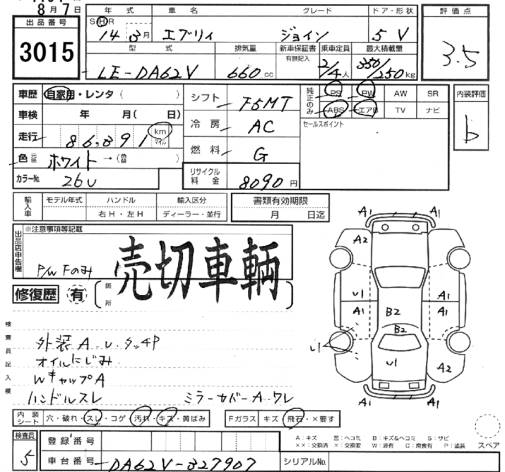 8月7日
出品番号
3015
年式 車名 グレード ドア・形状
S・H・R 14年3月 エブリィ ジョイン 5 V
型式 排気量 新車保証書 有無記入 乗車定員 最大積載量
LE-DA62V 660cc 2/4人 350/250kg
評価点
3.5
車歴 自家用・レンタ( )
車検 年 月( 日)
走行 86,391 km マイル
色 ホワイト→(替)
カラーNo. 26U
シフト F5MT
冷房 AC
燃料 G
リサイクル料金 8090円
純正のみ PS PW AW SR
ABS エアB TV ナビ
セールスポイント
内装評価
b
輸入車 モデル年式 ハンドル 輸入区分
右H・左H ディーラー・並行
書類有効期限
月 日迄
出品店申告欄 ※注意事項等記載
P/W Fのみ
売切車輌
修復歴 有 箇所
検査員記入欄
外装A.U.タッチP
オイルにじみ
WキャップA
ハンドルスレ ミラーカバーA.ワレ
内装シート 穴・破れ・スレ・コゲ 汚れ・キズ・黄ばみ Fガラス キズ 飛石・×要す
検査員 5
登録番号
車台番号 DA62V-327907
シリアルNo.
A1 A1
A2 A2
U1 A1 A1
B2
B2
U1 U1
A1 A1
A:キズ 凹:ヘコミ B:キズ&ヘコミ S:サビ
スペア